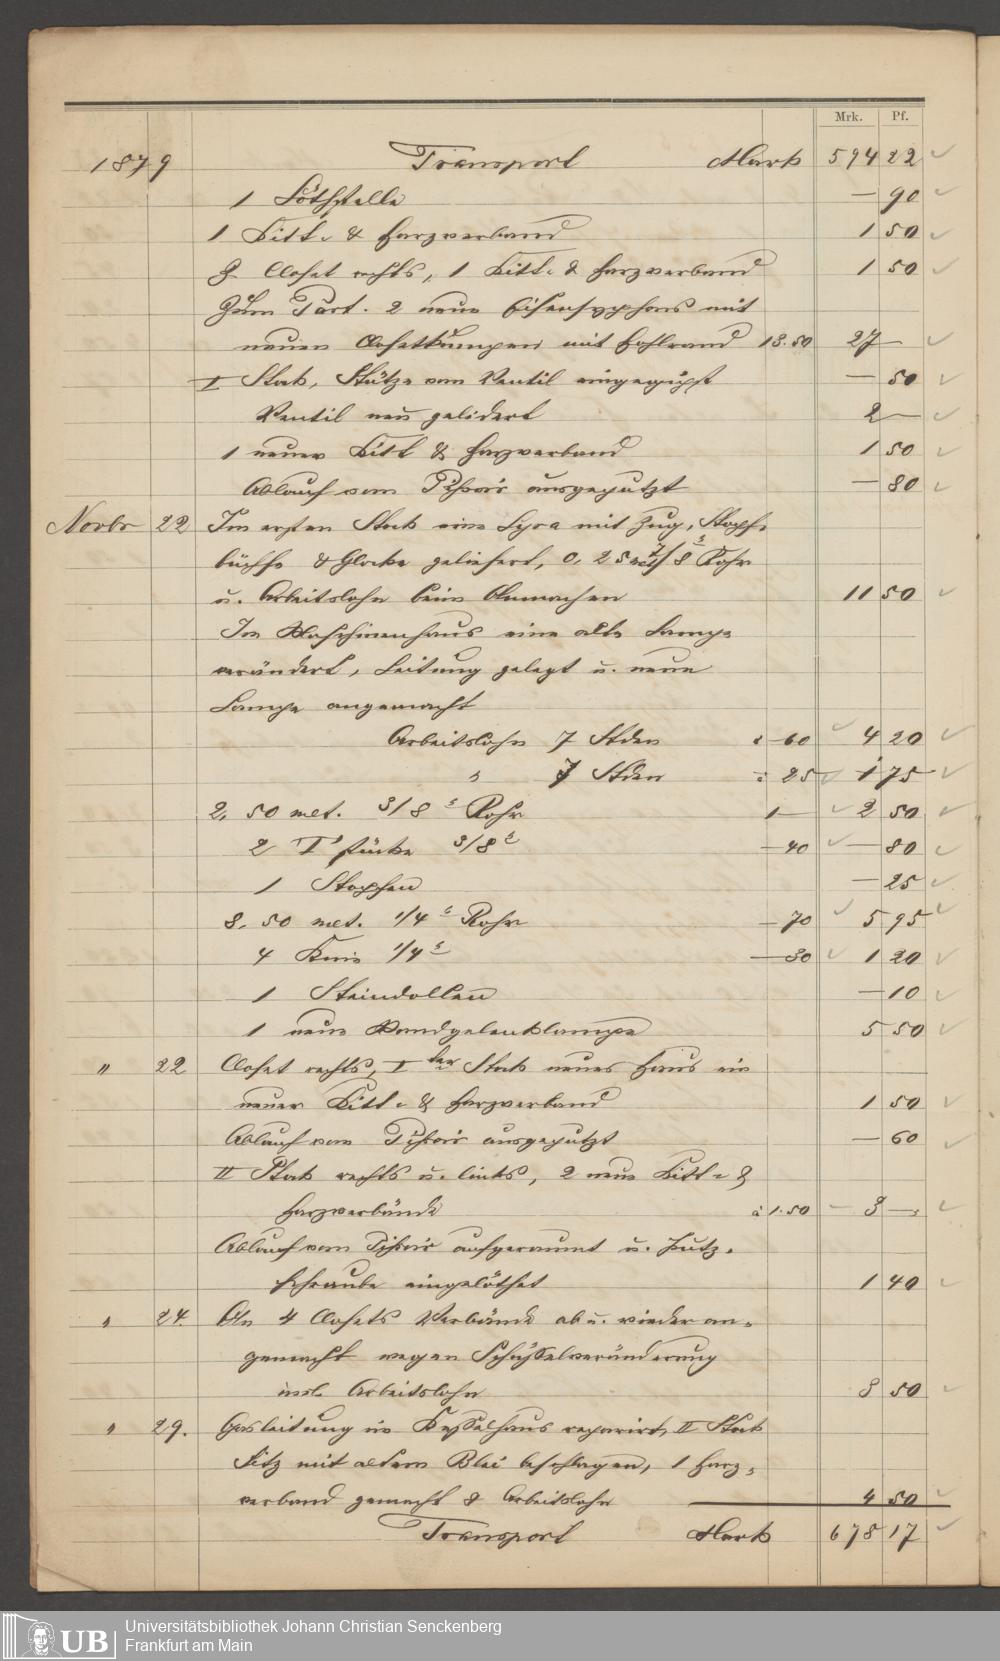 Mrk. Pf.
1879 Transport Mark 594 22
1 Löthstelle — 90
1 Kitt- & Harzverband 1 50
Closet rechts, 1 Kitt- & Harzverband 1 50
Zum Part. 2 neue Eisensyphons mit
neuen Closetkumpen mit Hohlrand 13.50 27 —
I Stock, Stütze vom Ventil eingegipst — 50
Ventil neu gelidert 2 —
1 neuer Kitt & Harzverband 1 50
Ablauf vom Pissoir ausgeputzt — 80
Novbr 22 Im ersten Stock eine Lyra mit Zug, Stopf-
büchse & Glocke geliefert, 0,25 met 3/8 Rohr
u. Arbeitslohn beim Anmachen 11 50
Im Maschinenhaus eine alte Lampe
verändert, Leitung gelegt u. neue
Lampe angemacht
Arbeitslohn 7 Stden à —60 4 20
" 7 Stden à 25 1 75
2,50 met. 3/8" Rohr 1— 2 50
2 T stücke 3/8" —40 — 80
1 Stopfen — 25
8,50 met. 1/4" Rohr —70 5 95
4 Knie 1/4" —30 1 20
1 Steindollen — 10
1 neue Wandgelenklampe 5 50
" 22 Closet rechts, I ter Stock neues Haus ein
neuer Kitt- & Harzverband 1 50
Ablauf vom Pissoir ausgeputzt — 60
II Stock rechts u. links, 2 neue Kitt- &
Harzverbände à 1.50 3 —
Ablauf vom Pissoir aufgeraumt u. Putz-
schraube eingelöthet 1 40
" 24. An 4 Closets Verbände ab u. wieder an-
gemacht wegen Schüsselveränderung
incl. Arbeitslohn 8 50
" 29. Gasleitung im Kesselhaus reparirt, II Stock
Sitz mit altem Blei beschlagen, 1 Harz-
verband gemacht & Arbeitslohn 4 50
Transport Mark 678 17
UB Universitätsbibliothek Johann Christian Senckenberg
Frankfurt am Main